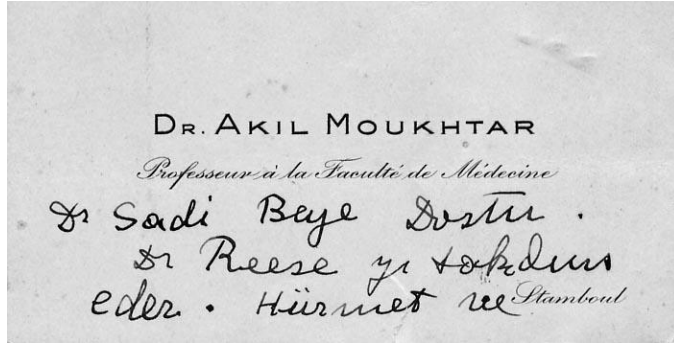 DR. AKIL MOUKHTAR
Professeur à la Faculté de Médecine
Dr Sadi Beye Dostu .
Dr Reese yi takdim
eder . Hürmet ve
Stamboul